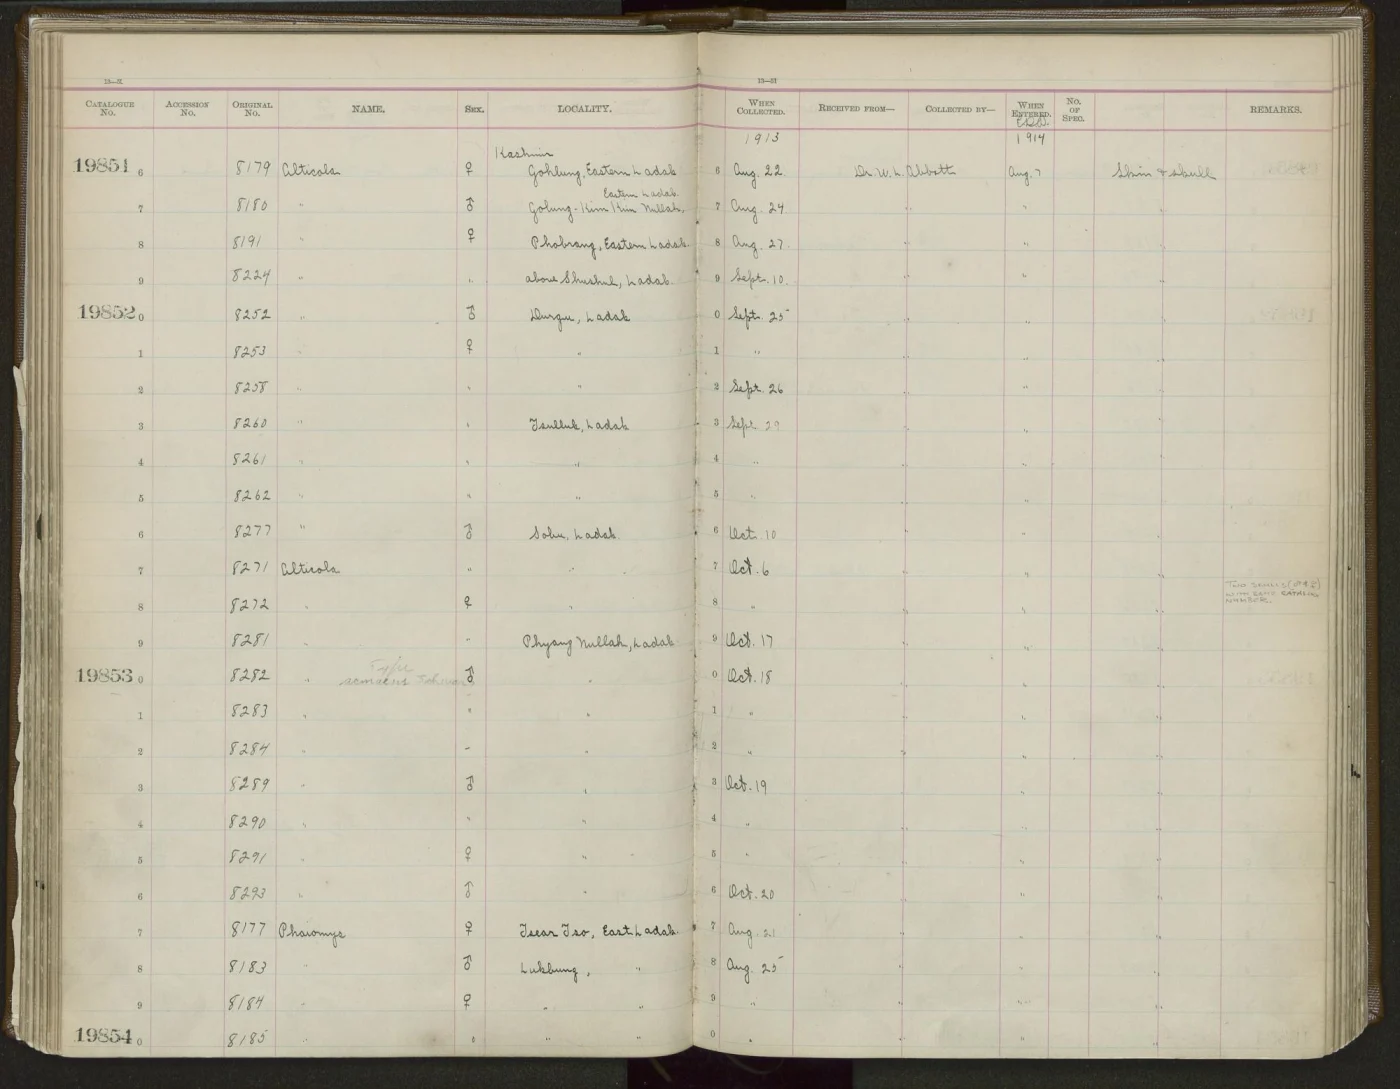 13—21 13—21
CATALOGUE No. ACCESSION No. ORIGINAL No. NAME. SEX. LOCALITY. WHEN COLLECTED. RECEIVED FROM— COLLECTED BY— WHEN ENTERED. No. OF SPEC. REMARKS.
1913 1914
Kashmir
19851 6 8179 Alticola ♀ Gohlung, Eastern Ladak 6 Aug. 22 Dr. W. L. Abbott Aug. 7 Skin & skull
Eastern Ladak
7 8180 " ♂ Golung-Kim Kim Nullah, 7 Aug. 24 " " "
8 8191 " ♀ Phobrang, Eastern Ladak 8 Aug. 27 " " "
9 8224 " " above Shushul, Ladak 9 Sept. 10 " " "
19852 0 8252 " ♂ Durgu, Ladak 0 Sept. 25 " " "
1 8253 " ♀ " 1 " " " "
2 8258 " " " 2 Sept. 26 " " "
3 8260 " " Tsulluk, Ladak 3 Sept 29 " " "
4 8261 " " " 4 " " " "
5 8262 " " " 5 " " " "
6 8277 " ♂ Sobu, Ladak 6 Oct. 10 " " "
7 8271 Alticola " " 7 Oct. 6 " " "
TWO SKULLS (♂ & ♀)
WITH SAME CATALOG
NUMBER
8 8272 " ♀ " 8 " " " "
9 8281 " " Phyang Nullah, Ladak 9 Oct. 17 " " "
Type
19853 0 8282 " ♂ " 0 Oct. 18 " " "
1 8283 " " " 1 " " " "
2 8284 " " " 2 " " " "
3 8289 " ♂ " 3 Oct. 19 " " "
4 8290 " " " 4 " " " "
5 8291 " ♀ " 5 " " " "
6 8293 " ♂ " 6 Oct. 20 " " "
7 8177 Phaiomys ♀ Tsear Tso, East Ladak 7 Aug. 21 " " "
8 8183 " ♂ Lukbung, " 8 Aug. 25 " " "
9 8184 " ♀ " " 9 " " " "
19854 0 8185 " " " " 0 " " " "